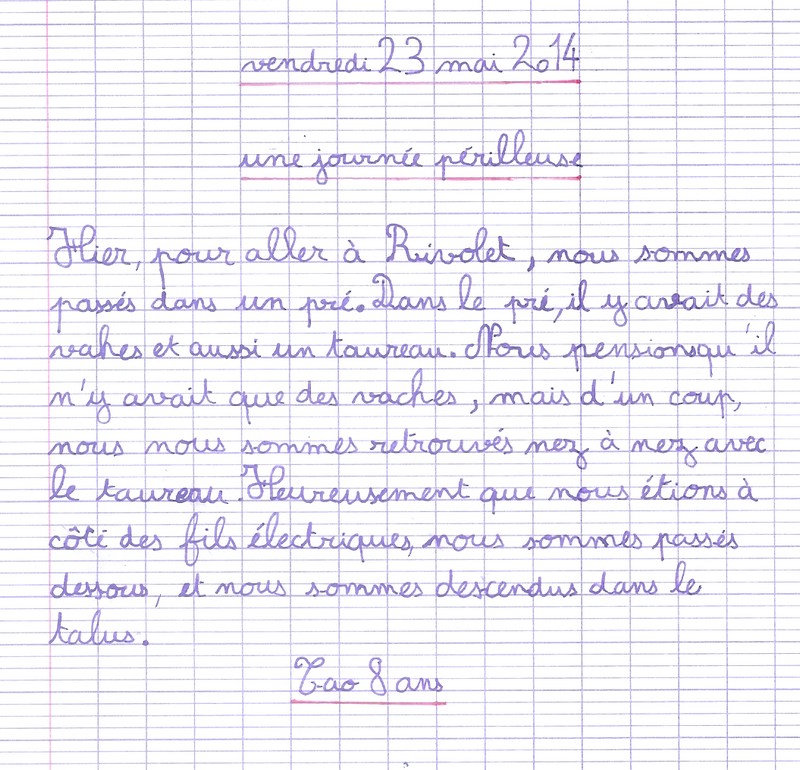 vendredi 23 mai 2014
une journée périlleuse
Hier, pour aller à Rivolet, nous sommes
passés dans un pré. Dans le pré, il y avait des
vahes et aussi un taureau. Nous pensionsqu'il
n'y avait que des vaches, mais d'un coup,
nous nous sommes retrouvés nez à nez avec
le taureau. Heureusement que nous étions à
côté des fils électriques, nous sommes passés
dessous, et nous sommes descendus dans le
talus.
Tao 8 ans